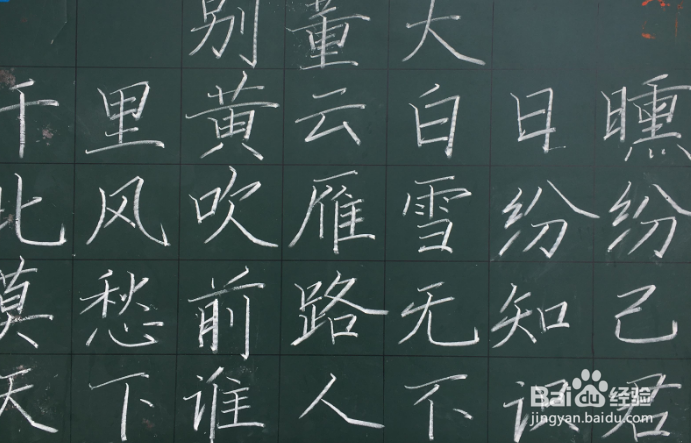 别董大
千里黄云白日曛
北风吹雁雪纷纷
莫愁前路无知己
天下谁人不识君
Baidu经验
jingyan.baidu.com